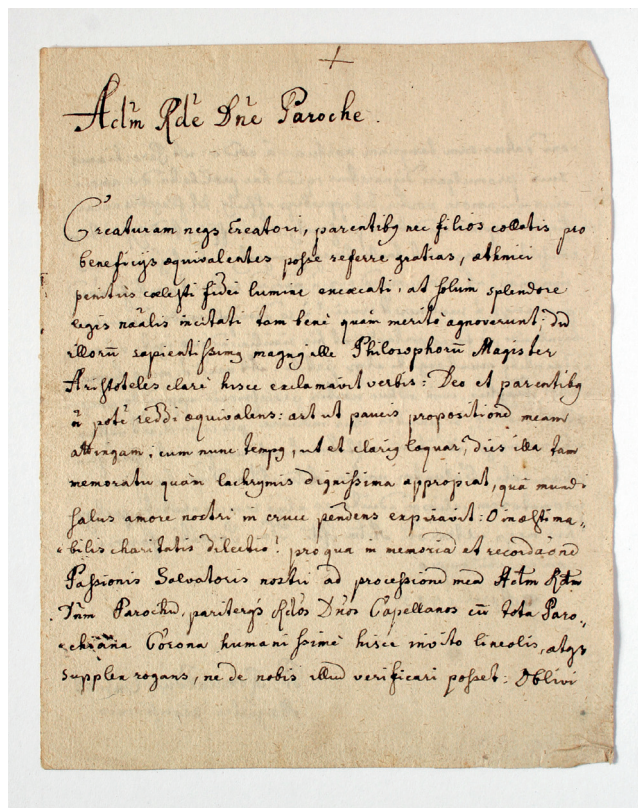 Actm̃ Rd̃e Dñe Paroche.
Creaturam neqȝ Creatori, parentibȝ nec filios collatis pro
beneficijs æquivalentes posse referre gratias, æthnici
penitus cœlesti fidei lumine excæcati, at solum splendore
legis nãalis incitati tam benè quàm meritò agnoverunt, dũ
illorũ sapientissimȝ magnȝ ille Philosophorũ Magister
Aristoteles clarè hisce exclamavit verbis: Deo et parentibȝ
ñ potẽ reddi æquivalens: ast ut paucis propositionẽ meam
attingam; cum nunc tempȝ, ut et clariȝ loquar, dies illa tam
memoratu quàm lachrymis dignissima appropiat, quâ mundi
salus amore nostri in cruce pendens expiravit: O inæstima„
„bilis charitatis dilectio! pro qua in memoria et recordãonẽ
Passionis Salvatoris nostri ad processionẽ meã Actm̃ Rdm̃
Dñm Parochũ, pariterqȝ Rd̃os Dños Capellanos cũ tota Paro„
„chiana Corona humanissimè hisce invito lineolis, atqȝ
supplex rogans, ne de nobis illud verificari posset: Oblivi